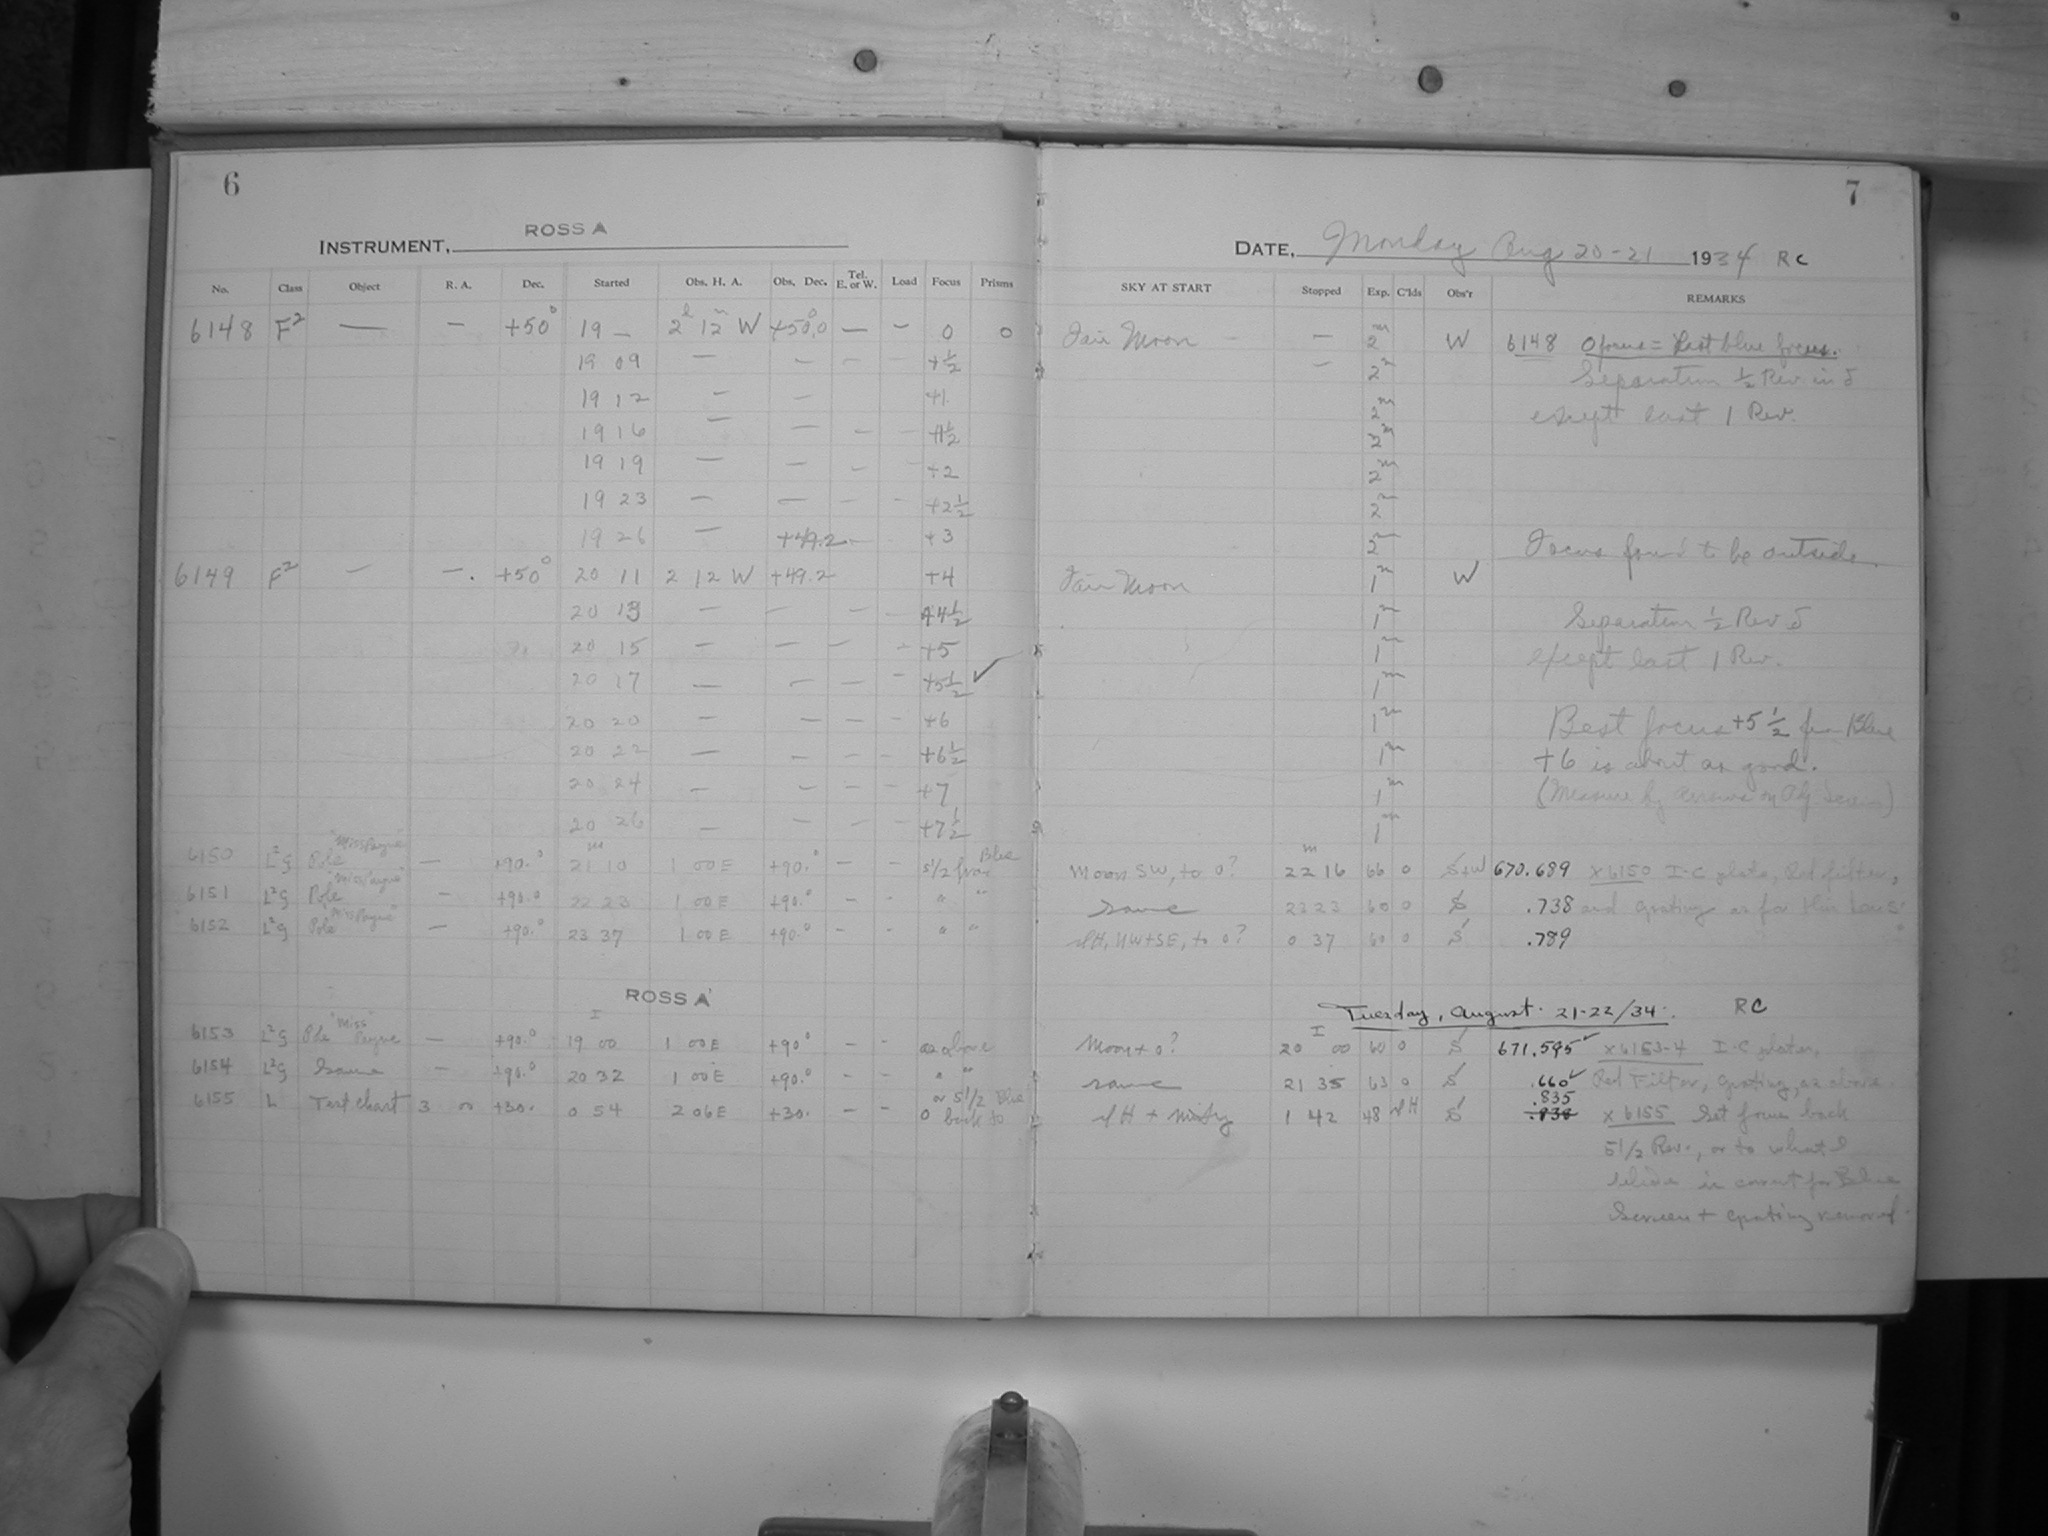 6
INSTRUMENT, ROSS A
No. Class Object R. A. Dec. Started Obs. H. A. Obs. Dec. Tel. E. or W. Load Focus Prisms
6148 F² — — +50° 19 — 2h 12m W +50°.0 — — 0 0
19 09 — — — +½
19 12 — — +1
19 16 — — — — +1½
19 19 — — — +2
19 23 — — — — +2½
19 26 — +49.2 — +3
6149 F² — — . +50° 20 11 2 12 W +49.2 +4
20 13 — — — — +4½
20 15 — — — — +5
20 17 — — — — +5½ ✓
20 20 — — — — +6
20 22 — — — — +6½
20 24 — — — — +7
20 26 — — — — +7½
6150 L²g Pole "Miss Payne" — +90.° 21 10 1 00 E +90.° — — 5 1/2 from Blue
6151 L²g Pole "Miss Payne" — +90.0 22 23 1 00 E +90.° — — " "
6152 L²g Pole "Miss Payne" — +90.° 23 37 1 00 E +90.° — — " "
ROSS A
6153 L²g Pole "Miss" Payne — +90.° 19 00 1 00 E +90° — — as above
6154 L²g Same — +90.° 20 32 1 00 E +90.° — — " "
6155 L Test Chart 3 00 +30. 0 54 2 06 E +30. — — 0 or 5 1/2 Blue back to
7
DATE, Monday Aug 20-21 1934 RC
SKY AT START Stopped Exp. C'lds Obs'r REMARKS
Fair Moon — — 2m W 6148 0 focus = Last blue focus.
— 2m Separation ½ Rev in δ
2m except last 1 Rev.
2m
2m
2m
2m Focus found to be outside.
Fair Moon 1m W
1m Separation ½ Rev δ
1m except last 1 Rev.
1m
1m Best focus +5½ from Blue
1m +6 is about as good.
1m (Measure by
1m
Moon SW, to 0? 22 16 66 0 S+W 670.689 x6150 I-C plate, Red filter,
same 23 23 60 0 S .738 and Grating as for this
H, NW+SE, to 0? 0 37 60 0 S .789
Tuesday, August 21-22/34. RC
Moon + 0? 20 00 60 0 S 671.595 ✓ x6153-4 I-C plates,
same 21 35 63 0 S .660 ✓ Red Filter, Grating, as above
.835
H + misty 1 42 48 H S .838 x 6155 Set focus back
5 1/2 Rev., or to what I
believe is correct for Blue
Screen + grating removed.